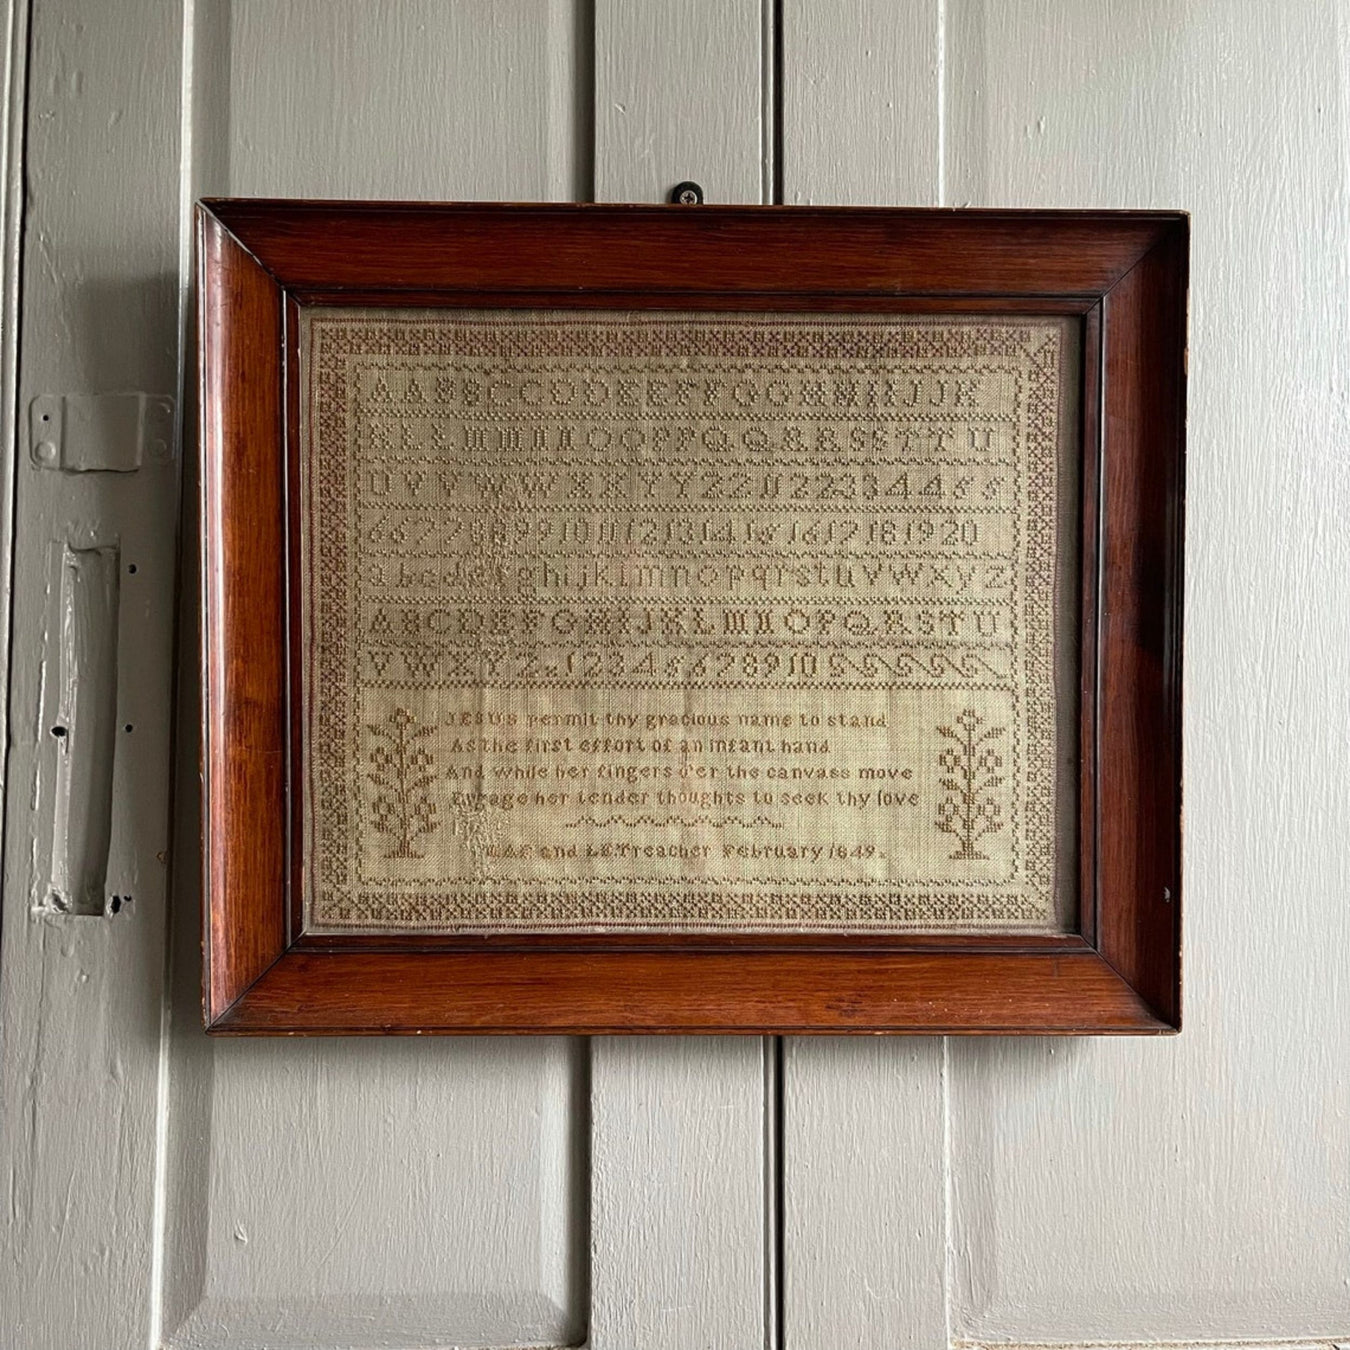 A A B B C C D D E E F F G G H H I I J J K
K L L M M N N O O P P Q Q R R S S T T U
U V V W W X X Y Y Z Z 1 1 2 2 3 3 4 4 5 5
6 6 7 7 8 8 9 9 10 11 12 13 14 15 16 17 18 19 20
a b c d e f g h i j k l m n o p q r s t u v w x y z
A B C D E F G H I J K L M N O P Q R S T U
V W X Y Z & 1 2 3 4 5 6 7 8 9 10
JESUS permit thy gracious name to stand
As the first effort of an infant hand
And while her fingers o'er the canvass move
Engage her tender thoughts to seek thy love
and Treacher February 1849.